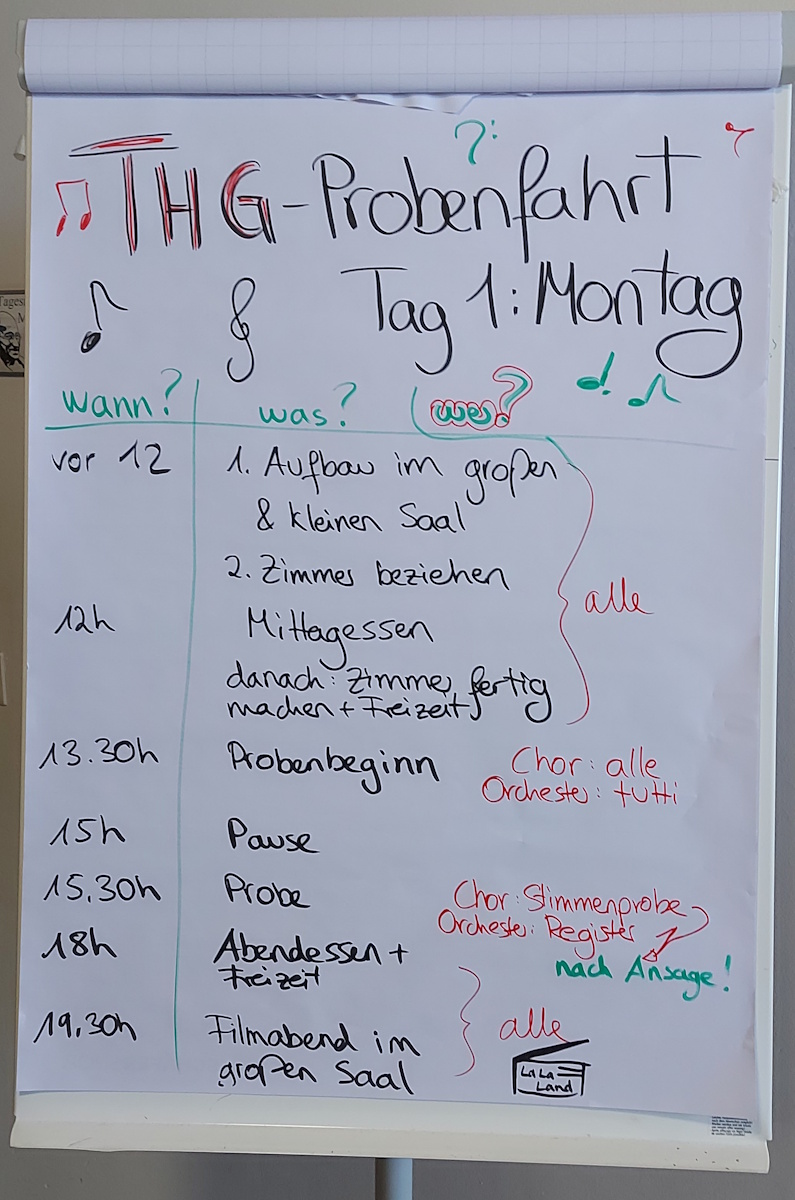 THG-Probenfahrt
Tag 1: Montag
wann? was? wer?
vor 12 1. Aufbau im großen
& kleinen Saal
2. Zimmer beziehen
alle
12h Mittagessen
danach: Zimmer fertig
machen + Freizeit
13.30h Probenbeginn Chor: alle
Orchester: tutti
15h Pause
15.30h Probe Chor: Stimmenprobe
Orchester: Register
18h Abendessen + nach Ansage!
Freizeit
19.30h Filmabend im alle
großen Saal
La La
Land
Tages
M